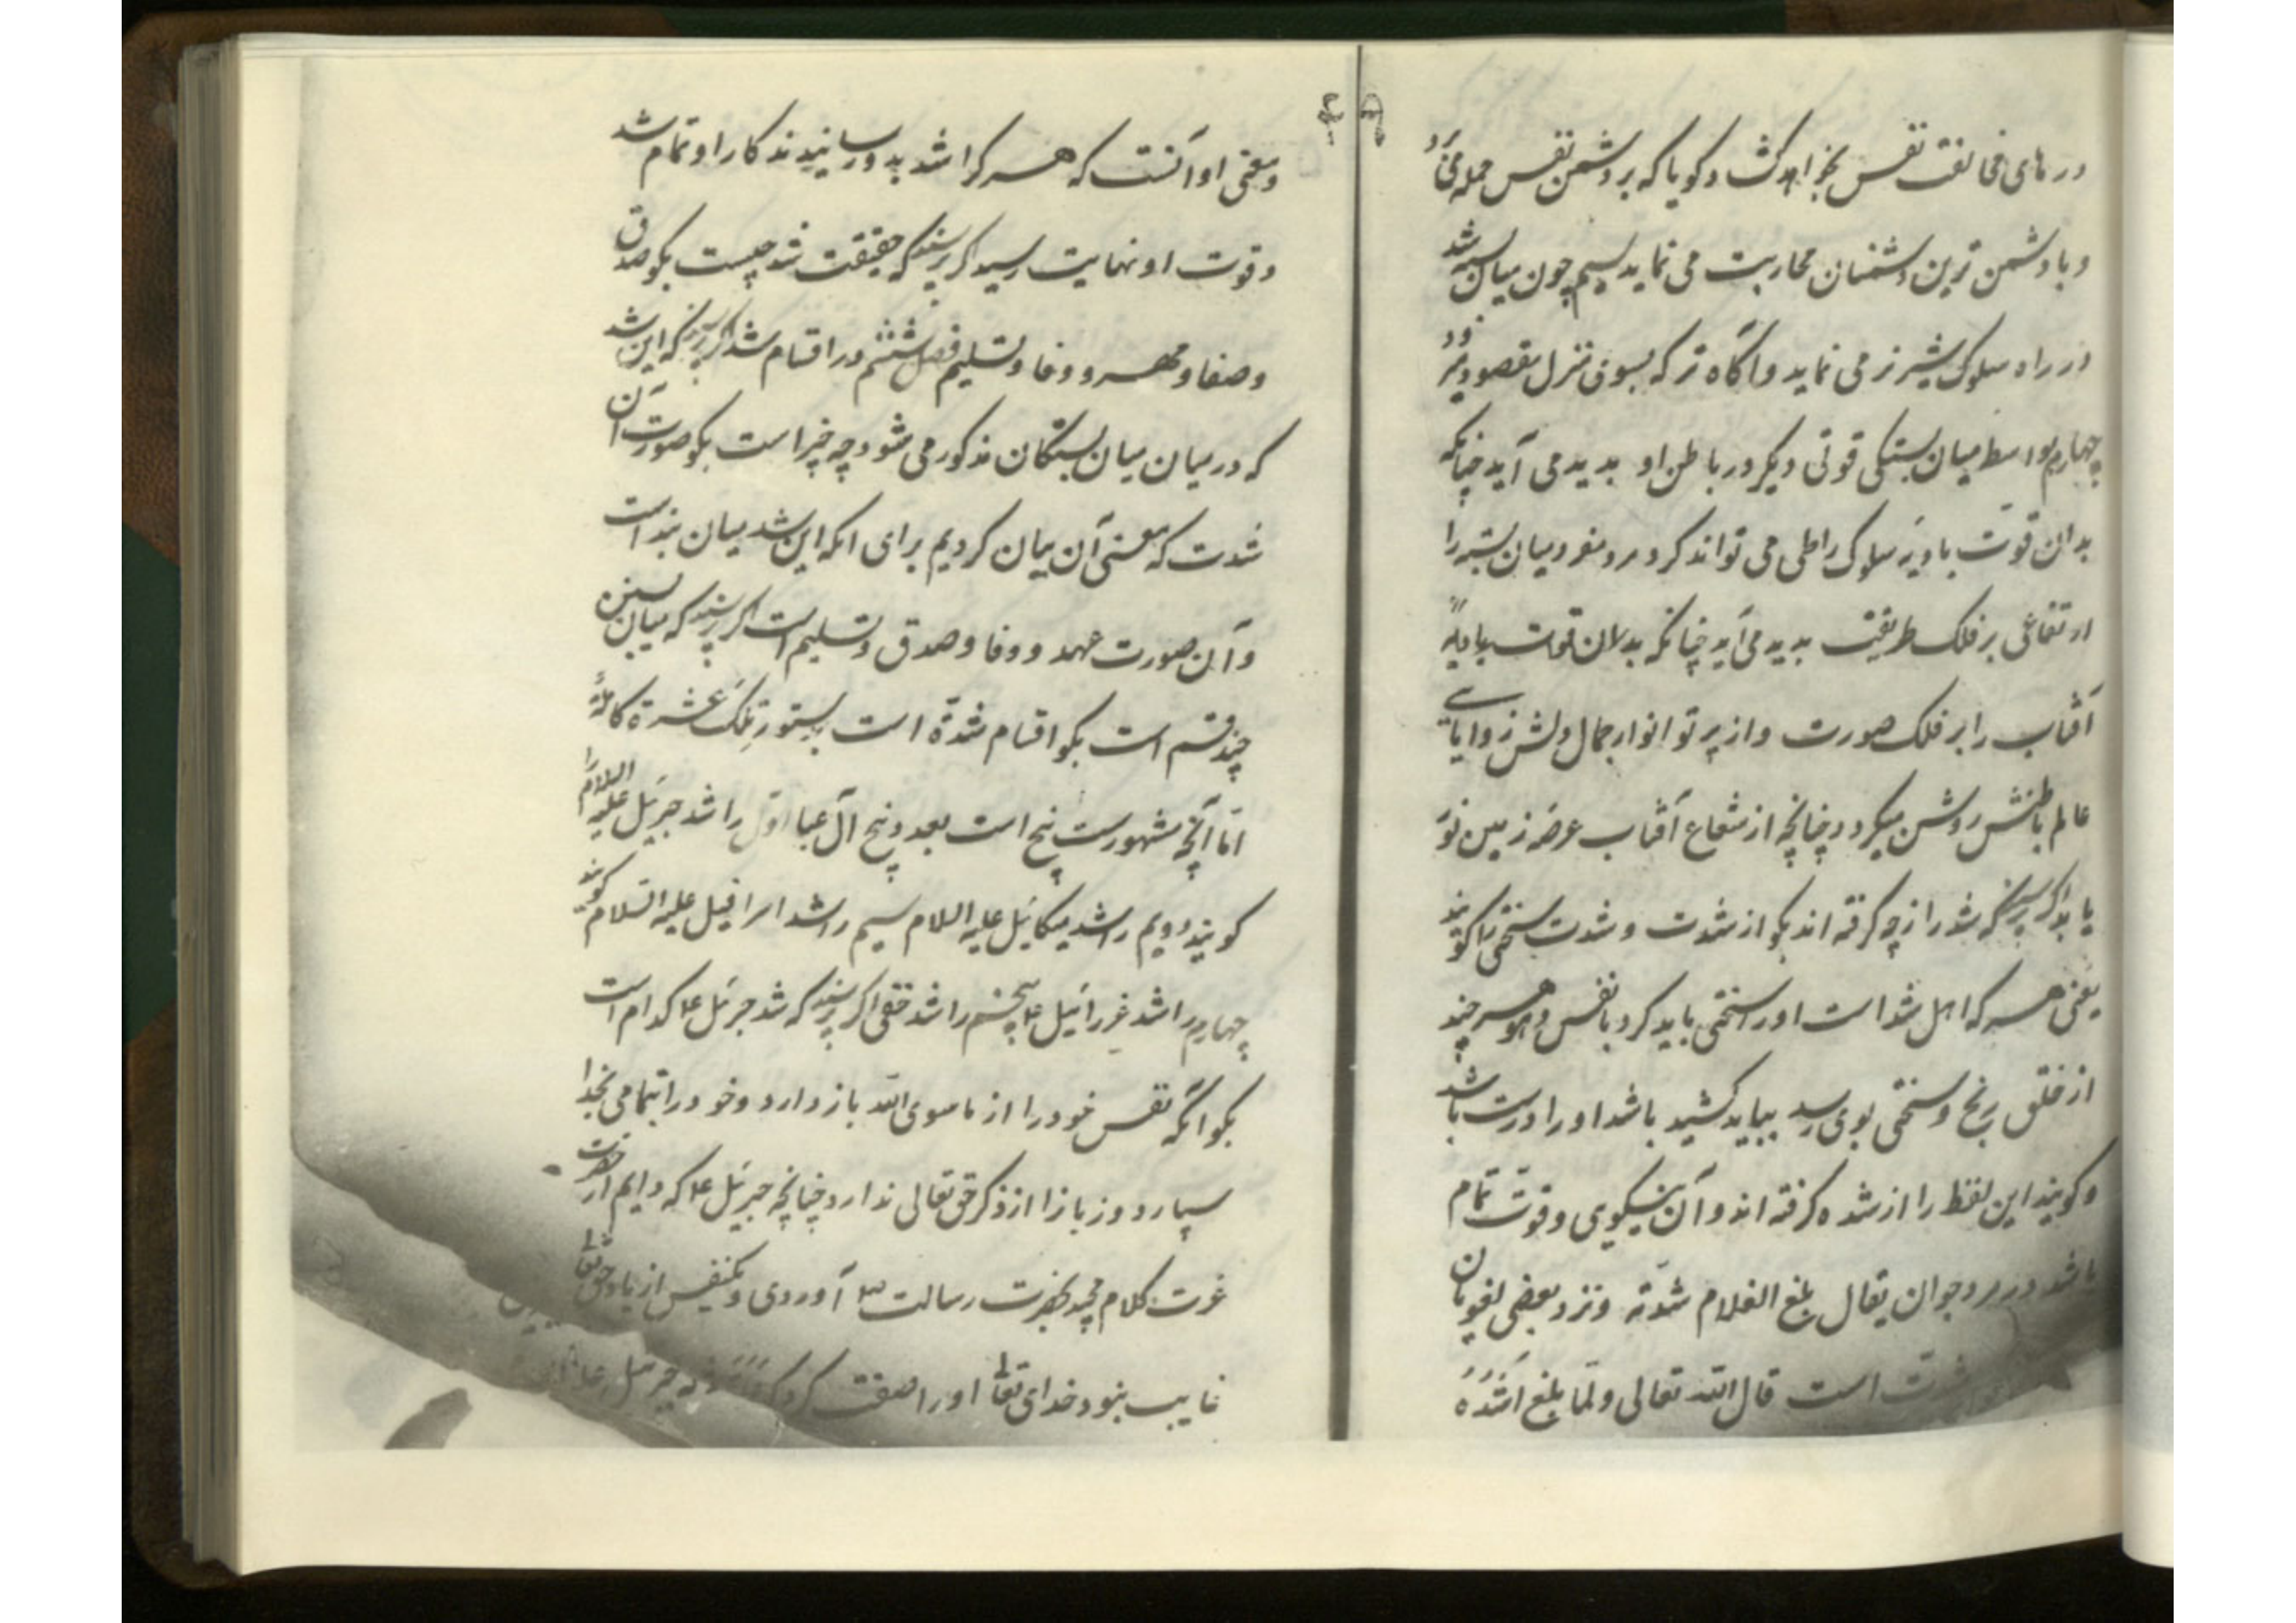 در های مخالفت نفس بخواهد کشاد کویا که بر دشمن نفس حمله می آرد
و با دشمن ترین دشمنان محاربت می نماید سیم چون میان بسته شد
در راه سلوک تیزتر می نماید و آگاه تر که بسوی منزل مقصود میرود
چهارم بواسطه میان بستکی قوتی دیکر در باطن او بدید می آید چنانکه
بدان قوت بادیه سلوک را طی می تواند کرد و مرد میان بسته را
ارتفاعی بر فلک طریقت بدید می آید چنانکه بدان قوت بادیه
آفتاب را بر فلک صورت و از پرتو انوار جمال دلش زوایای
عالم باطنش روشن میکردد چنانچه از شعاع آفتاب عرصه زمین نور
یابد اکر پرسند که شد را از چه کرفته اند بکو از شدت و شدت سختی را کویند
یعنی هر که اهل شد است او را سختی باید کرد با نفس و هوا هر چند
از خلق رنج و سختی بوی رسد بباید کشید باشد او را درست باشد
و کویند این لفظ را از شده کرفته اند و آن نیکویی و قوت تمام
باشد در مرد جوان یقال بلغ الغلام شدته و نزد بعضی لغویان
شدت است قال الله تعالی ولما بلغ اشده
و معنی او آنست که هر کرا شد بدو رسانیدند کار او تمام شد
و قوت او نهایت رسید اکر پرسند که حقیقت شد چیست بکو صدق
و صفا و مهر و وفا و تسلیم فصل ششم در اقسام شد اکر پرسند که این شد
که در میان میان بستکان مذکور می شود چه چیز است بکو صورت آن
شدت که معنی آن بیان کردیم برای انکه این شد میان بند است
و آن صورت عهد و وفا و صدق و تسلیم است اکر پرسند که میان بستن
چند قسم است بکو اقسام شد ده است بدستور تلک عشرة کاملة
اما آنچه مشهورست پنج است بعدد پنج آل عبا اول را شد جبرئیل علیه السلام را
کویند دویم را شد میکائیل علیه السلام سیم را شد اسرافیل علیه السلام کویند
چهارم را شد عزرائیل ع پنجم را شد حقی اکر پرسند که شد جبرئیل ع کدام است
بکو آنکه نفس خود را از ماسوی الله باز دارد و خود را بتمامی بخدا
سپارد و زبانرا از ذکر حق تعالی ندارد چنانچه جبرئیل ع که دایم از حضرت
عزت کلام مجید بحضرت رسالت ص آوردی و یکنفس از یاد حق تعالی
غایب نبود خدای تعالی او را صفت کرد که